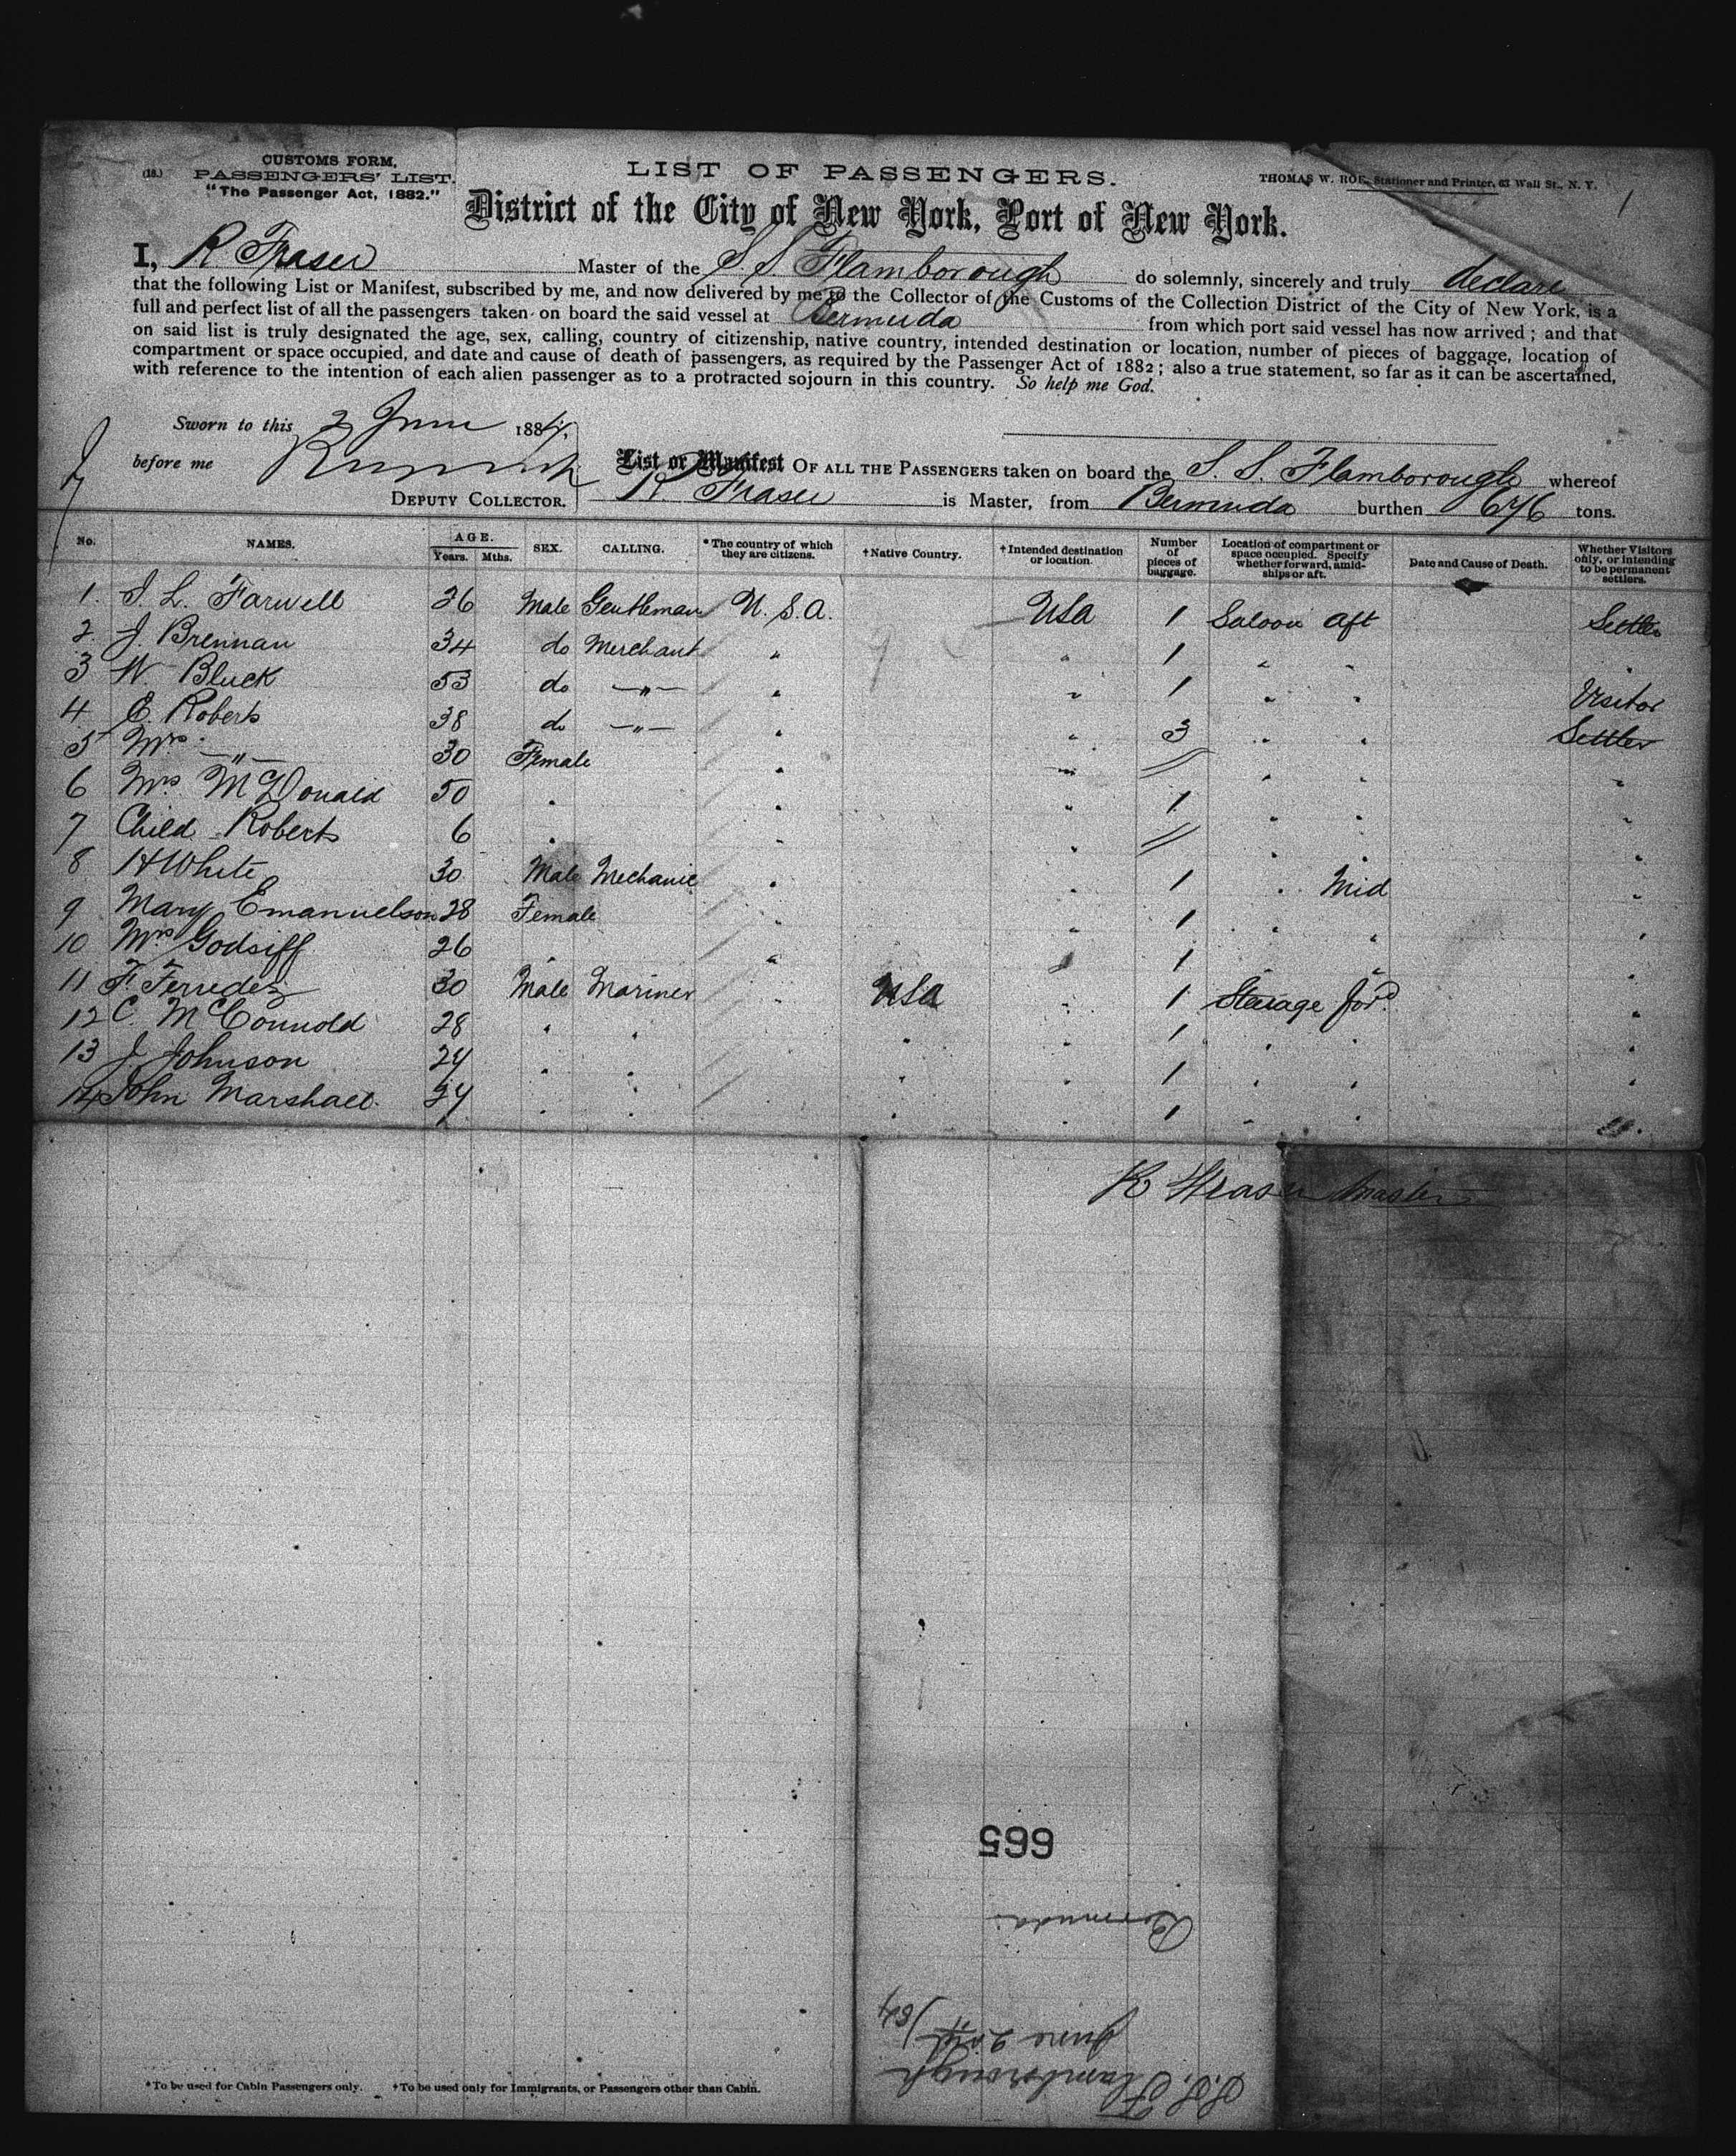 (18.)
CUSTOMS FORM,
PASSENGERS' LIST.
"The Passenger Act, 1882."
LIST OF PASSENGERS.
THOMAS W. ROE, Stationer and Printer, 63 Wall St., N. Y.
1
District of the City of New York, Port of New York.
I, R Fraser Master of the S. S. Flamborough do solemnly, sincerely and truly declare
that the following List or Manifest, subscribed by me, and now delivered by me to the Collector of the Customs of the Collection District of the City of New York, is a
full and perfect list of all the passengers taken on board the said vessel at Bermuda from which port said vessel has now arrived; and that
on said list is truly designated the age, sex, calling, country of citizenship, native country, intended destination or location, number of pieces of baggage, location of
compartment or space occupied, and date and cause of death of passengers, as required by the Passenger Act of 1882; also a true statement, so far as it can be ascertained,
with reference to the intention of each alien passenger as to a protracted sojourn in this country. So help me God.
Sworn to this 2 June 1884,
before me
DEPUTY COLLECTOR.
List or Manifest OF ALL THE PASSENGERS taken on board the S. S. Flamborough whereof
R. Fraser is Master, from Bermuda burthen 676 tons.
No. NAMES. AGE. Years. Mths. SEX. CALLING. *The country of which they are citizens. †Native Country. †Intended destination or location. Number of pieces of baggage. Location of compartment or space occupied. Specify whether forward, amidships or aft. Date and Cause of Death. Whether Visitors only, or intending to be permanent settlers.
1. S. L. Farwell 26 Male Gentleman U. S. A. USA 1 Saloon Aft Settler
2. J. Brennan 34 do Merchant " " 1 " " "
3 W Bluck 53 do —"— " " 1 " " Visitor
4 E. Roberts 38 do —"— " " 3 " " Settler
5 Mrs. —"— 30 Female " " // " " "
6 Mrs McDonald 50 " " " 1 " " "
7 Child Roberts 6 " " " // " " "
8 H White 30 Male Mechanic " " 1 " Mid "
9 Mary Emanuelson 28 Female " " 1 " " "
10 Mrs Godsiff 26 " " " 1 " " "
11 F. Ferredez 30 Male Mariner " USA " 1 Steerage For'd "
12 C. McConnold 28 " " " " 1 " " "
13 J Johnson 24 " " " " 1 " " "
14 John Marshall 24 " " " " 1 " " "
R Fraser Master
665
Bermuda
S.S. Flamborough
June 2nd /84
*To be used for Cabin Passengers only. †To be used only for Immigrants, or Passengers other than Cabin.